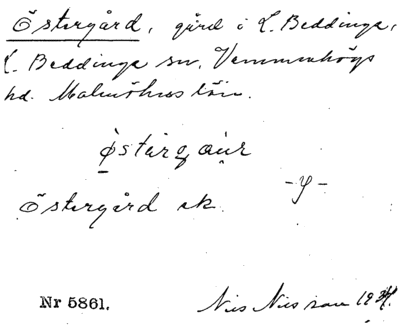 Östergård, gård i L. Beddinge,
L. Beddinge sn. Vemmenhögs
hd. Malmöhus län.
östərgaúr
Östergård ek. -φ-
Nr 5861. Nils Nilsson 1934.